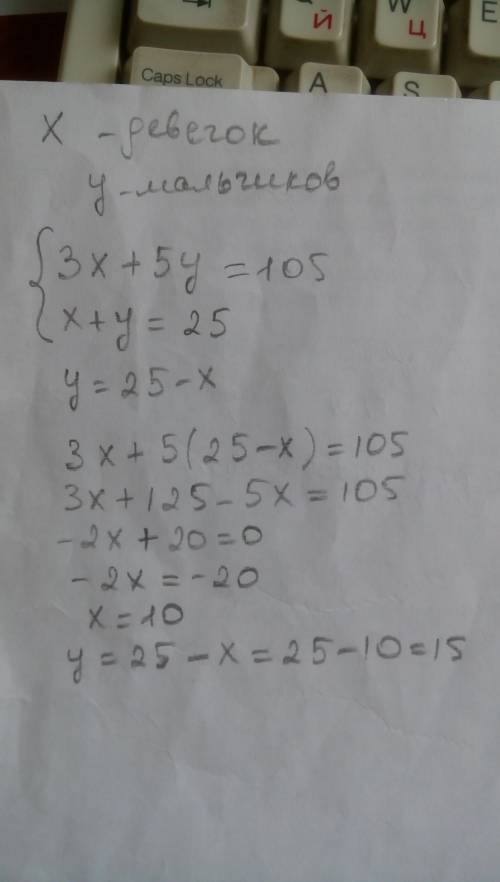 Й
W
Ц
E
Caps Lock
A
S
x - девочок
y - мальчиков
3x + 5y = 105
x + y = 25
y = 25 - x
3x + 5(25 - x) = 105
3x + 125 - 5x = 105
-2x + 20 = 0
-2x = -20
x = 10
y = 25 - x = 25 - 10 = 15